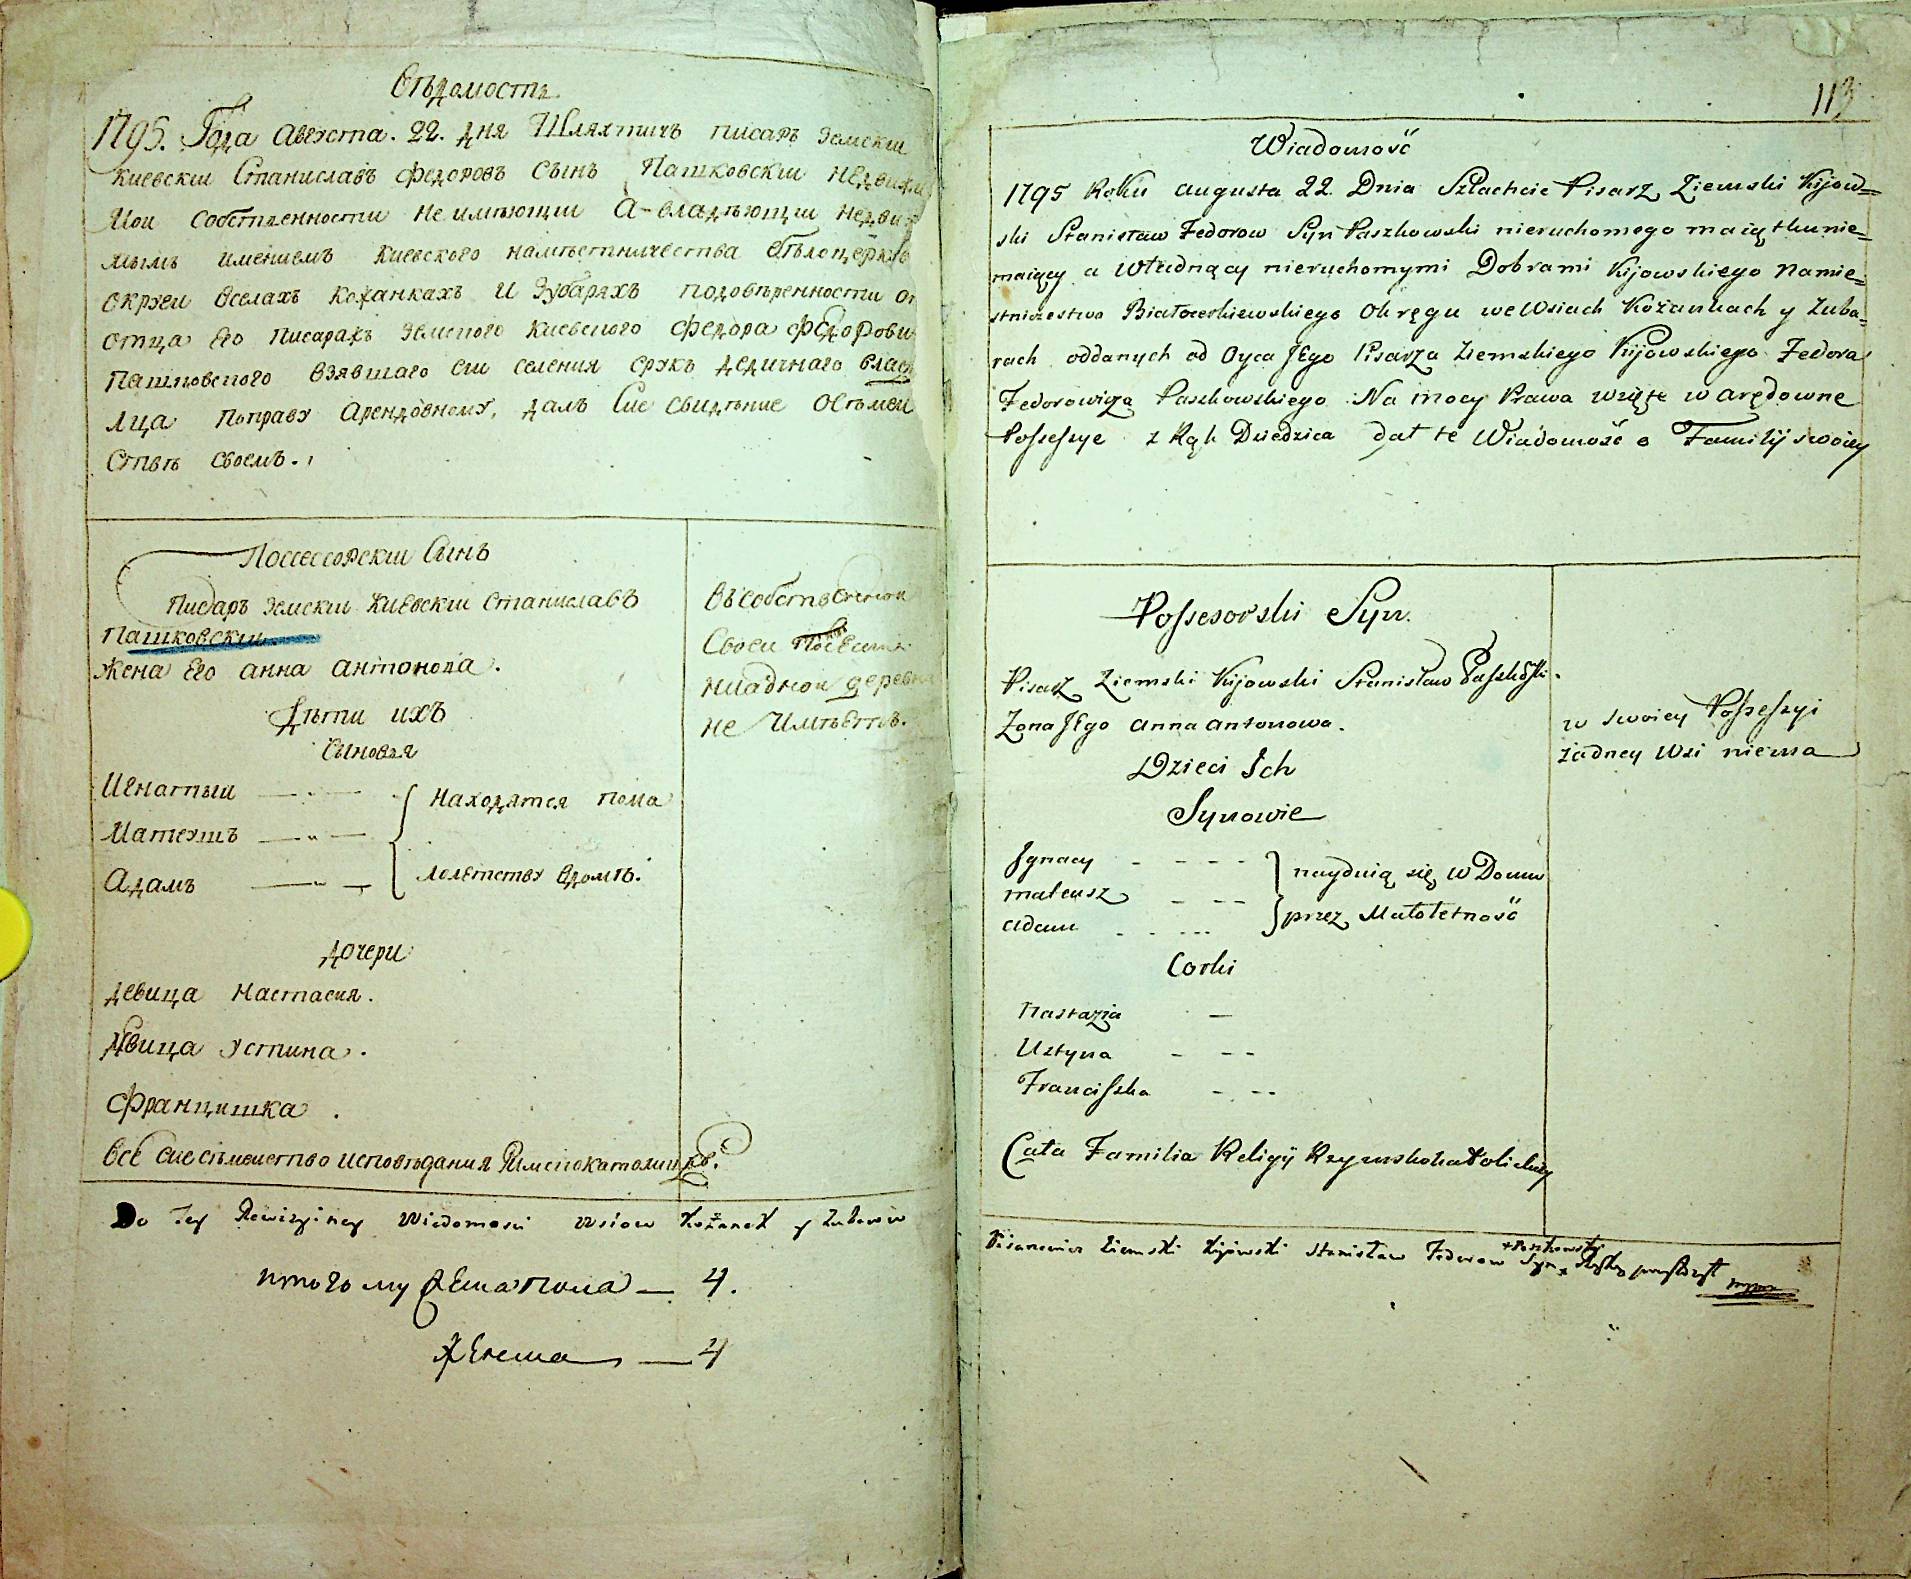 Вѣдомость
1795. Года Августа. 22. дня Шляхтичъ писаръ земскии
киевскии Станиславъ Федоровъ сынъ Пашковскии недвижи
мои собственности неимѣющии а владѣющии недвижи
мымъ имениемъ киевского намѣстничества бѣлоцерков
округи вселахъ Кожанкахъ и Зубаряхъ подовѣренности от
отца Его писаря земского киевского Федора Федорови
Пашковского взявшаго сии селения срукъ дедичнаго владѣ
лца поправу арендовному, далъ Сие свидѣние Осѣмеи
ствѣ своемъ.
Поссессорскии Сынъ
Писаръ земскии Киевскии Станиславъ
Пашковскии
жена Его анна антонова.
Дѣти ихъ
Сыновья
Игнатыи
Матеушъ
Адамъ
находятся пома
лолетству вдомѣ.
Дочери
девица Настасия.
девица Устина.
Францишка.
Все сие сѣмеиство исповѣдания Римскокатолицкъ.
Въсобственнои
Своеи
ниаднои деревни
не Имѣетъ.
Do Tey Rewizyiney Wiadomosci Wsiow Kożanek y Zubarow
итого му жеска пола — 4.
Женска — 4
113
Wiadomość
1795 Roku augusta 22 Dnia Szlachcic Pisarz Ziemski Kijow=
ski Stanisław Fedorow Syn Paszkowski nieruchomego maiątku nie=
maiący a władnący nieruchomymi Dobrami Kijowskiego Namie=
stniczestwa Białocerkiewskiego Okręgu we Wsiach Kożankach y Zuba=
rach oddanych od Oyca JEgo Pisarza Ziemskiego Kijowskiego Fedora
Fedorowicza Paszkowskiego Na mocy Prawa wzięte w arędowne
Possessye z Rąk Dziedzica dał te Wiadomość o Familij swoiey
Possesorski Syn.
Pisarz Ziemski Kijowski Stanisław Paszkowski.
Zona JEgo anna antonowa.
Dzieci Ich
Synowie
Jgnacy
mateusz
adam
nayduią się w Domu
przez Małoletność
Corki
Nastazja
Ustyna
Franciszka
Cała Familia Religij Rzymskokatolickiey
w swoiey Possessyi
żadney Wsi niema
Pisarzewicz Ziemski Kijowski Stanisław Fedorow Syn
+ Paszkowski